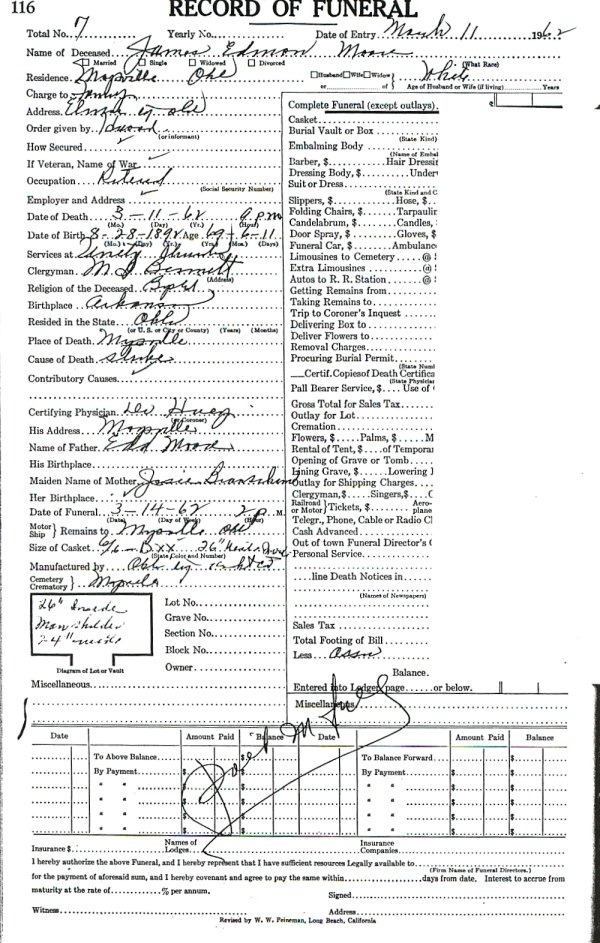 116
RECORD OF FUNERAL
Total No. 7 Yearly No. Date of Entry March 11 1962
Name of Deceased James Edmon Moore
Married Single Widowed Divorced (What Race)
Residence Maysville Okl Husband Wife Widow White
or of Age of Husband or Wife (if living) Years
Charge to Family
Address Elmore City Okl
Order given by
(or informant)
How Secured
If Veteran, Name of War
Occupation Retired
(Social Security Number)
Employer and Address
Date of Death 3-11-62 9 pm
(Mo.) (Day) (Yr.) (Hour)
Date of Birth 8-28-1892 Age 69-6-11
(Mo.) (Day) (Yr.) (Yrs.) (Mos.) (Days)
Services at Unity Church
Clergyman M. J. Bennett
(Address)
Religion of the Deceased Bapt
Birthplace Arkansas
Resided in the State Okl
(or U. S. or City or County) (Years) (Months)
Place of Death Maysville
Cause of Death stroke
Contributory Causes
Certifying Physician Dr
(or Coroner)
His Address Maysville
Name of Father Edd Moore
His Birthplace
Maiden Name of Mother Josie
Her Birthplace
Date of Funeral 3-14-62 2 p M.
(Date) (Day of Week) (Hour)
Motor Ship Remains to Maysville Okl
Size of Casket 6/6 - B XX 26"
(State Color and Number)
Manufactured by Okl
Cemetery Crematory Maysville
26" Inside
24"
Diagram of Lot or Vault
Lot No.
Grave No.
Section No.
Block No.
Owner
Miscellaneous
Complete Funeral (except outlays)
Casket
Burial Vault or Box
(State Kind)
Embalming Body
(Name of Embal
Barber, $ Hair Dressin
Dressing Body, $ Under
Suit or Dress
(State Kind and C
Slippers, $ Hose, $
Folding Chairs, $ Tarpaulin
Candelabrum, $ Candles,
Door Spray, $ Gloves, $
Funeral Car, $ Ambulanc
Limousines to Cemetery @ $
Extra Limousines @ $
Autos to R. R. Station @
Getting Remains from
Taking Remains to
Trip to Coroner's Inquest
Delivering Box to
Deliver Flowers to
Removal Charges
Procuring Burial Permit
(State Numb
Certif. Copies of Death Certifica
(State Physician
Pall Bearer Service, $ Use of
Gross Total for Sales Tax
Outlay for Lot
Cremation
Flowers, $ Palms, $ M
Rental of Tent, $ of Temporar
Opening of Grave or Tomb
Lining Grave, $ Lowering
Outlay for Shipping Charges
Clergyman, $ Singers, $
Railroad or Motor Tickets, $ Aeroplane
Telegr., Phone, Cable or Radio C
Cash Advanced
Out of town Funeral Director's
Personal Service
line Death Notices in
(Names of Newspapers)
Sales Tax
Total Footing of Bill
Less Assn
Balance.
Entered into Ledger, page or below.
Miscellaneous
Date Amount Paid Balance Date Amount Paid Balance
To Above Balance $ $ To Balance Forward $
By Payment $ $ By Payment $ $
" " $ $ " " $ $
" " $ $ " " $ $
" " $ $ " " $ $
" " $ $ " " $ $
Insurance $ Names of Lodges Insurance Companies
I hereby authorize the above Funeral, and I hereby represent that I have sufficient resources Legally available to
(Firm Name of Funeral Directors.)
for the payment of aforesaid sum, and I hereby covenant and agree to pay the same within days from date. Interest to accrue from
maturity at the rate of % per annum. Signed
Witness Address
Revised by W. W. Peineman, Long Beach, California